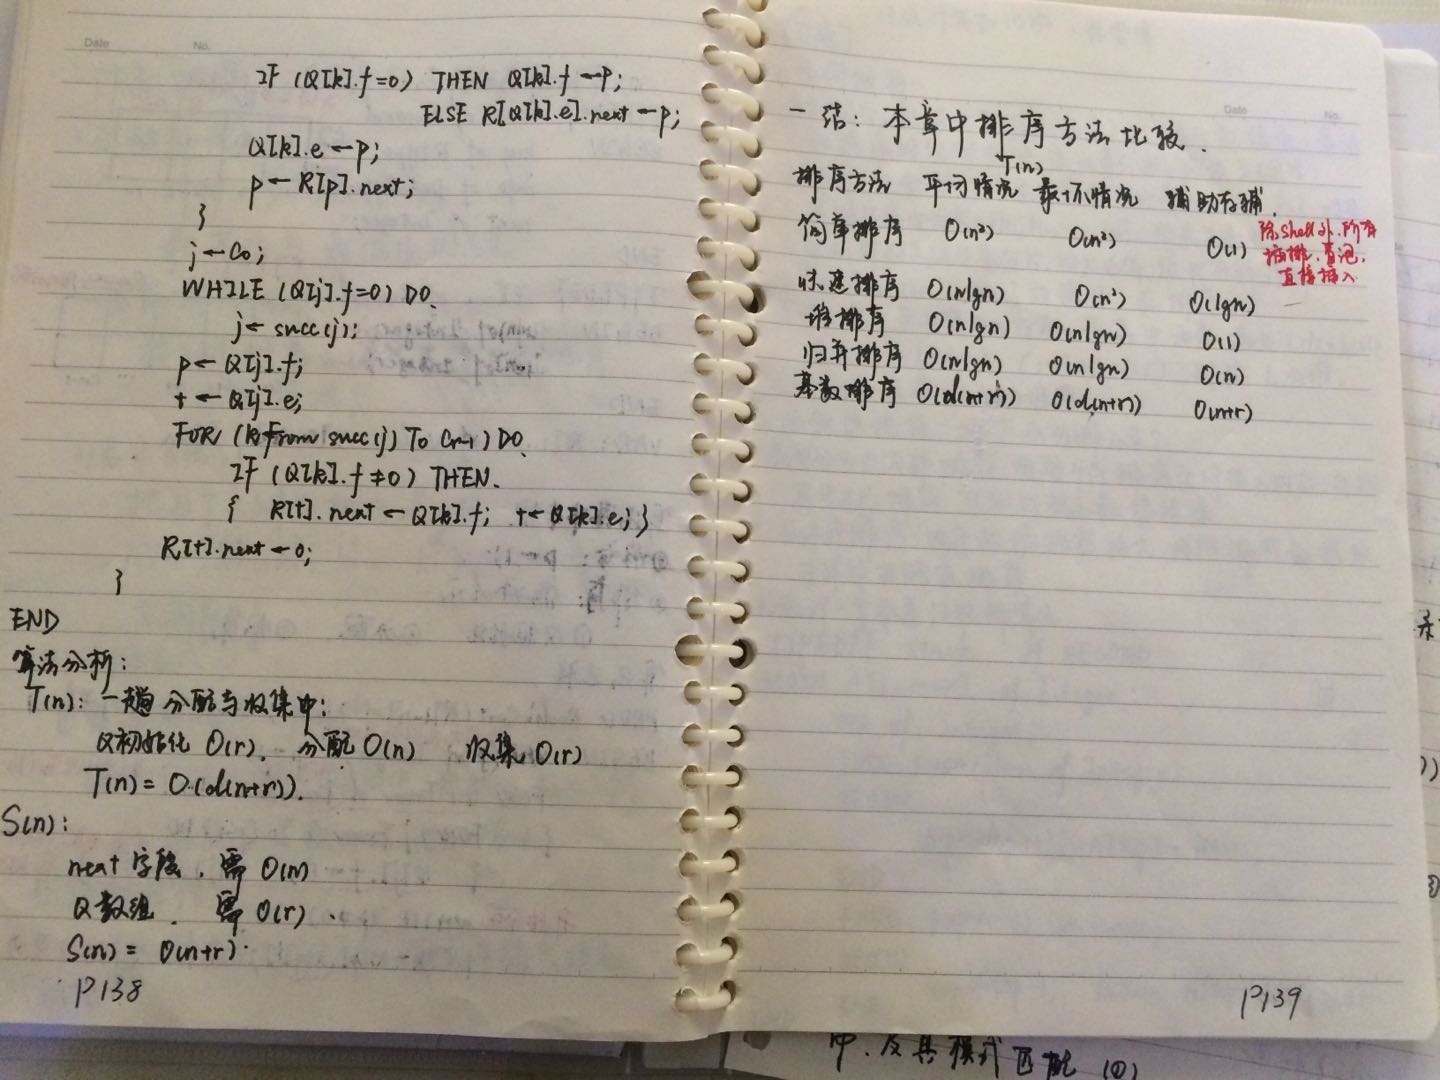 Date No.
IF (Q[k].f=0) THEN Q[k].f←p;
ELSE R[Q[k].e].next←p;
Q[k].e←p;
p←R[p].next;
}
j←C₀;
WHILE (Q[j].f=0) DO
j←succ(j);
p←Q[j].f;
t←Q[j].e;
FOR (k from succ(j) To Cr-1) DO
IF (Q[k].f≠0) THEN
{ R[t].next←Q[k].f; t←Q[k].e; }
R[t].next←0;
}
END
算法分析:
T(n): 一趟分配与收集中:
Q初始化 O(r), 分配 O(n) 收集 O(r)
T(n)= O(d(n+r)).
S(n):
next 字段, 需 O(n)
Q数组, 需 O(r).
S(n)= O(n+r).
P138
Date No.
一结: 本章中排序方法比较.
T(n)
排序方法 平均情况 最坏情况 辅助存储.
简单排序 O(n²) O(n²) O(1)
除Shell外,所有
冒泡,
直接插入
快速排序 O(nlgn) O(n²) O(lgn)
堆排序 O(nlgn) O(nlgn) O(1)
归并排序 O(nlgn) O(nlgn) O(n)
基数排序 O(d(n+r)) O(d(n+r)) O(n+r)
P139
中.及其模式匹配 (1)